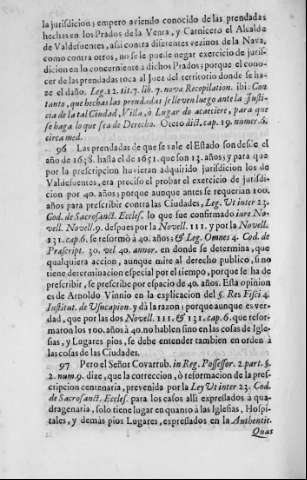 la jurisdicion; empero aviendo conocido de las prendadas
hechas en los Prados de la Venta, y Carnicero el Alcalde
de Valdefuentes, assi contra diferentes vezinos de la Nava,
como contra otros, no se le puede negar exercicio de jurisdicion
en lo concerniente à dichos Prados; porque el conocer
de las prendadas toca al Juez del territorio donde se haze
el daño. Leg. 12. tit. 7. lib. 7. nova Recopilation. ibi: Con
tanto, que hechas las prendadas se lleven luego ante la Justicia
de la tal Ciudad, Villa, ò Lugar do acaeciere, para que
se haga lo que sea de Derecho. Otero dict. cap. 19. numer. 6.
circa med.
96 Las prendadas de que se vale el Estado son desde el
año de 1638. hasta el de 1651. que son 13. años; y para que
por la prescripcion huvieran adquirido jurisdicion los de
Valdefuentes, era preciso el probar el exercicio de jurisdicion
por 40. años; porque aunque antes se requerian 100.
años para prescribir contra las Ciudades, Leg. Ut inter 23.
Cod. de Sacrosanct. Eccles. lo que fue confirmado iure Novell.
Novell. 9. despues por la Novell. 111. y por la Novell.
131. cap. 6. se reformò à 40. años; & Leg. Omnes 4. Cod. de
Præscript. 30. vel 40. annor. en donde se determina, que
qualquiera accion, aunque mire al derecho publico, si no
tiene determinacion especial por el tiempo, porque se ha de
prescribir, se prescribe por espacio de 40. años. Esta opinion
es de Arnoldo Vinnio en la explicacion del §. Res Fisci 4.
Institut. de Usucapion. y dà la razon: porque aunque es verdad,
que por las dos Novell. 111. & 131. cap. 6. que reformaton
los 100. años à 40. no hablen sino en las cosas de Iglesias,
y Lugares pios, se debe entender tambien en orden à
las cosas de las Ciudades.
97 Pero el Señor Covarrub. in Reg. Possessor. 2. part. §.
2. num. 9. dize, que la correccion, ò reformacion de la prescripcion
centenaria, prevenida por la Ley Ut inter 23. Cod.
de Sacrosanct. Eccles. para los casos alli expressados à quadragenaria,
solo tiene lugar en quanto à las Iglesias, Hospitales,
y demàs pios Lugares, expressados en la Authentic.
Quas